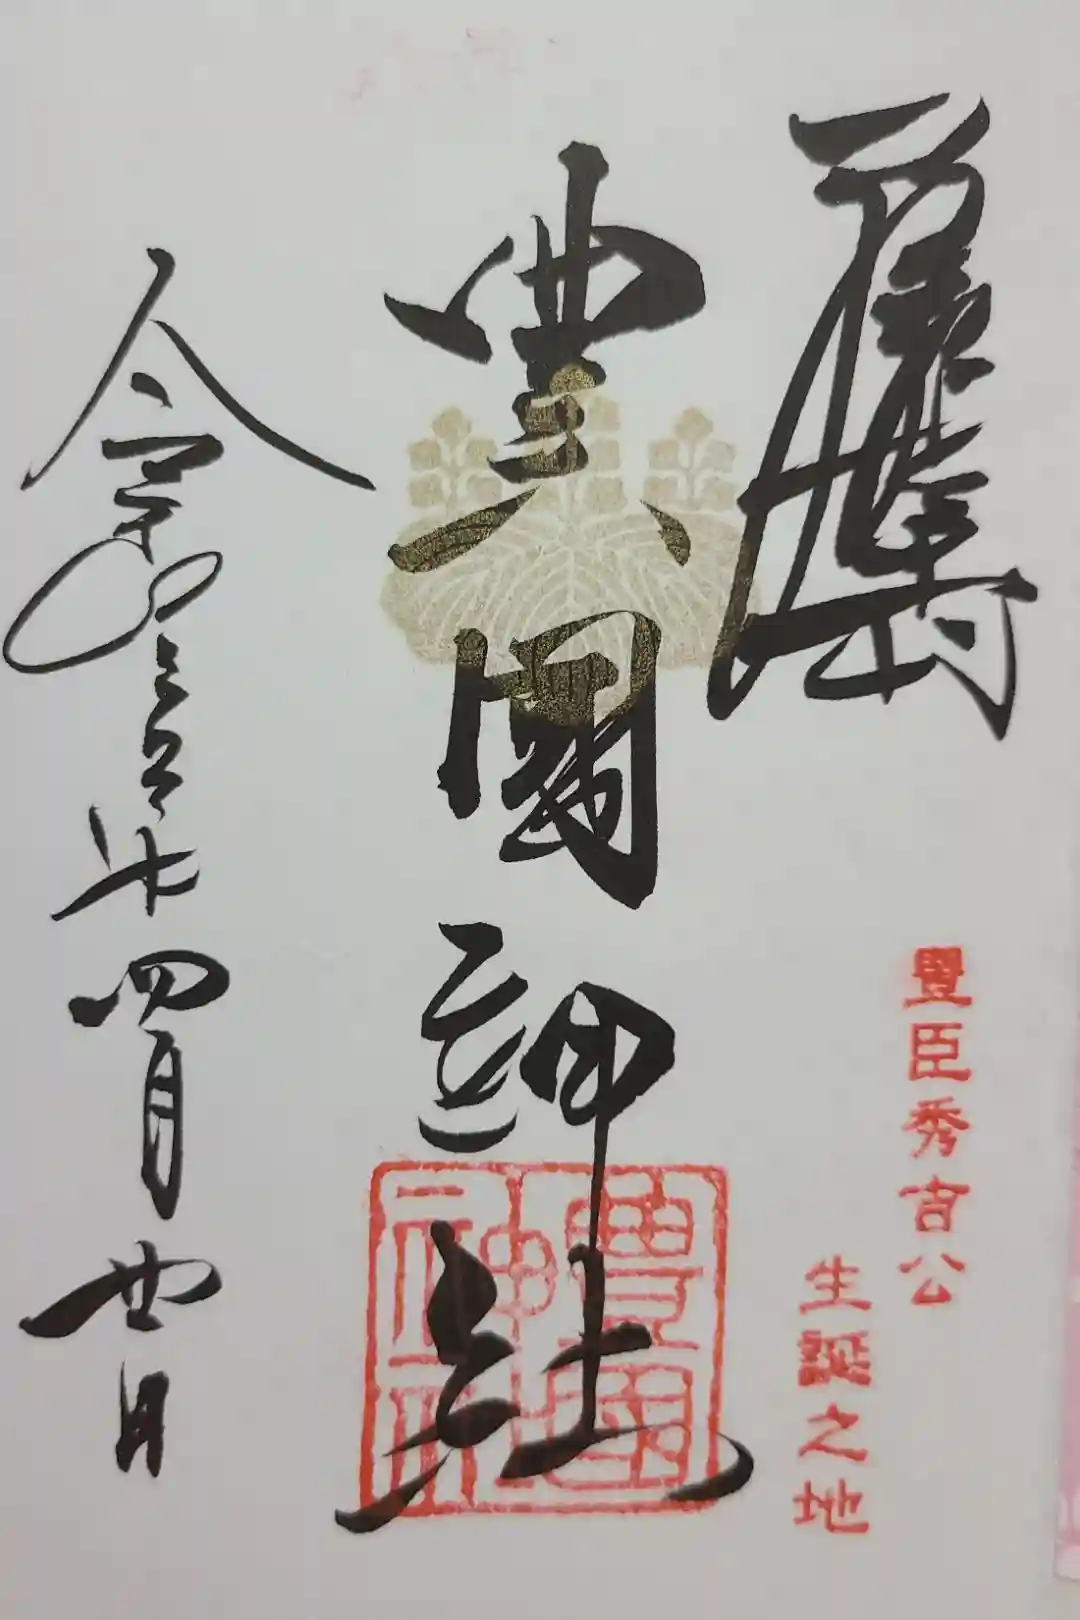 豊臣秀吉公
生誕之地
豊國神社
豊國神社
令和 年四月廿日